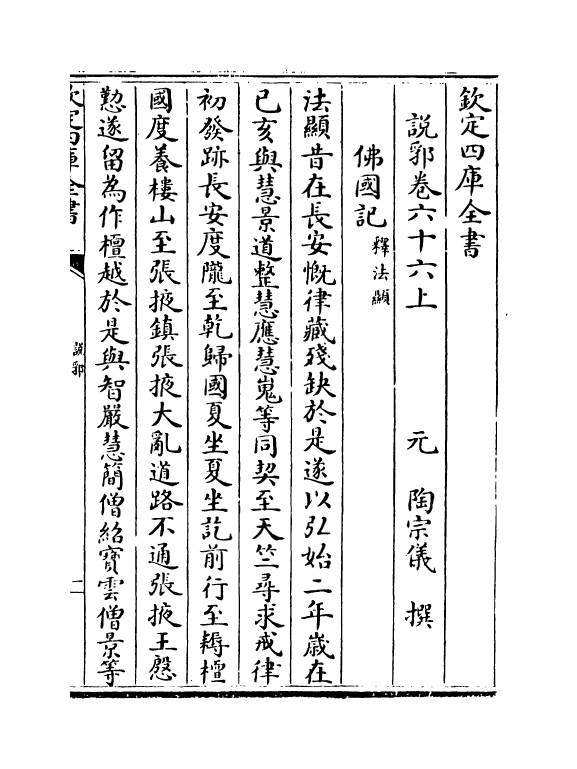 欽定四庫全書
說郛卷六十六上 元 陶宗儀 撰
佛國記 釋法顯
法顯昔在長安慨律藏殘缺於是遂以弘始二年歲在
己亥與慧景道整慧應慧嵬等同契至天竺尋求戒律
初發跡長安度隴至乾歸國夏坐夏坐訖前行至耨檀
國度養樓山至張掖鎮張掖大亂道路不通張掖王慇
懃遂留為作檀越於是與智嚴慧簡僧紹寶雲僧景等
欽定四庫全書
說郛